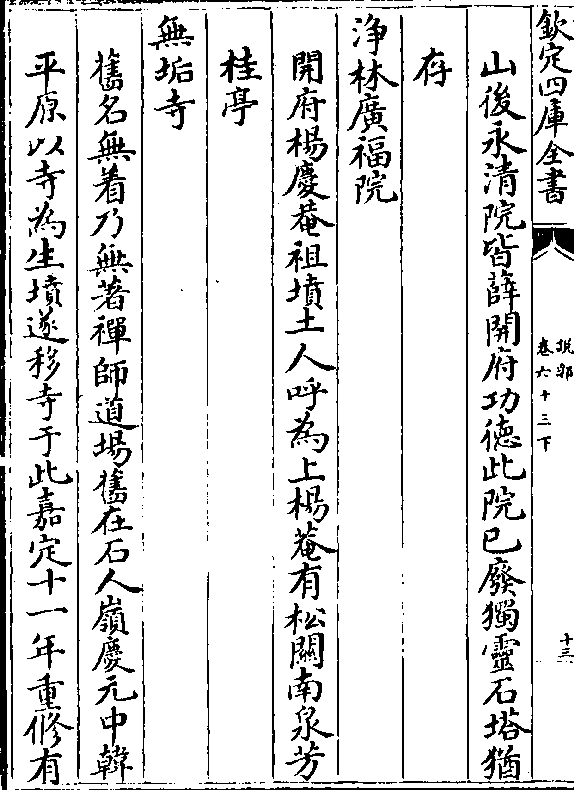 欽定四庫全書
說郛
卷六十三下
十三
山後永清院皆薛開府功德此院已廢獨靈石塔猶
存
淨林廣福院
開府楊慶菴祖墳土人呼為上楊菴有松關南泉芳
桂亭
無垢寺
舊名無着乃無著禪師道場舊在石人嶺慶元中韓
平原以寺為生墳遂移寺于此嘉定十一年重修有